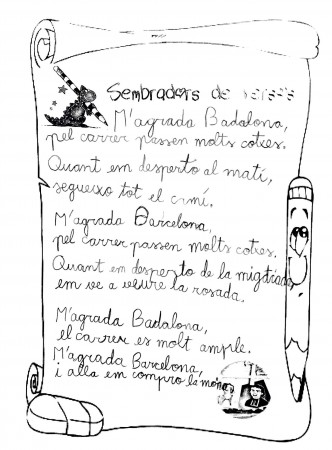 Sembradors de versos
M'agrada Badalona,
pel carrer passen molts cotxes.
Quant em desperto al matí,
segueixo tot el camí.
M'agrada Barcelona,
pel carrer passen molts cotxes.
Quant em desperto de la migdiada
em ve a veure la rosada.
M'agrada Badalona,
el carrer es molt ample.
M'agrada Barcelona,
i alla em compro la mona